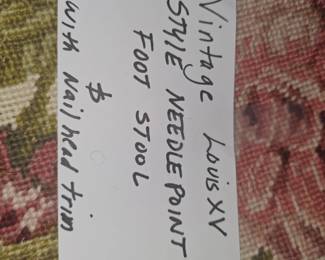 Vintage Louis XV
STYLE NEEDLEPOINT
FOOT STOOL
$
with Nailhead trim